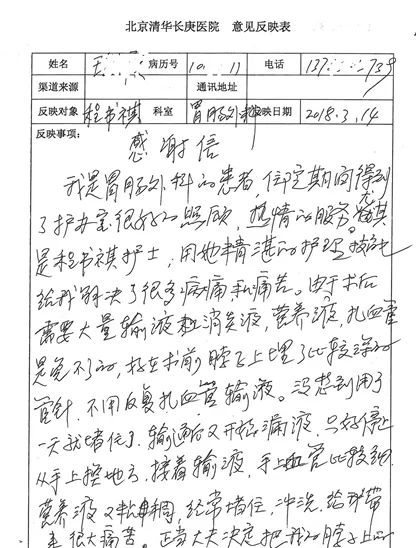 北京清华长庚医院 意见反映表
姓名 王 病历号 10 11 电话 137 739
渠道来源 通讯地址
反映对象 程书祺 科室 胃肠外科 反映日期 2018.3.14
反映事项：
感谢信
我是胃肠外科的患者，住院期间得到
了护办室很好的照顾，热情的服务，尤其
是程书祺护士，用她丰富精湛的护理技能
给我解决了很多病痛和痛苦。由于术后
需要大量输液和消炎液，营养液，扎血管
是免不了的，我在术前脖子上埋了比较深的
管针，不用反复扎血管输液。没想到用了
一天就堵住了，输通后又开始漏液，只好停止
从手上换地方，接着输液，手上血管比较细，
营养液又粘稠，经常堵住，冲洗，给我带
来很大痛苦。正当大夫决定把我的脖子上的